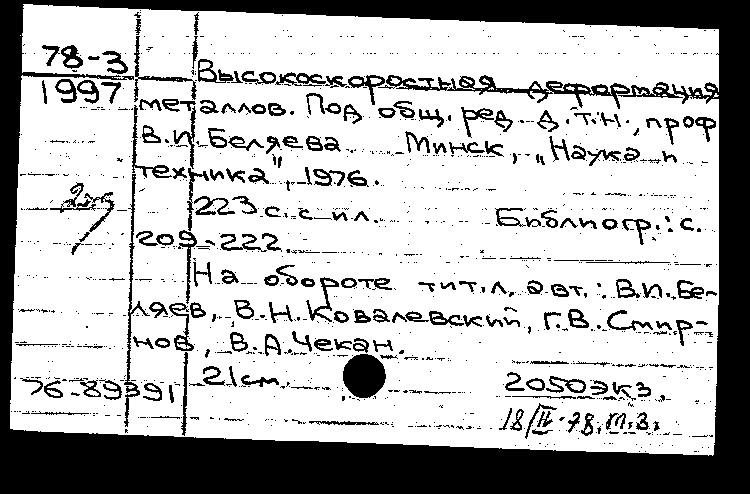 78-3
1997
Высокоскоростная деформация
металлов. Под общ. ред. д.т.н., проф
В.И. Беляева Минск, „Наука и
техника", 1976.
223 с. с ил. Библиогр.: с.
209-222.
На обороте тит.л. авт.: В.И. Бе-
ляев, В.Н. Ковалевский, Г.В. Смир-
нов, В.А. Чекан.
21 см. 2050экз.
76-89391
18/II-78. т.з.